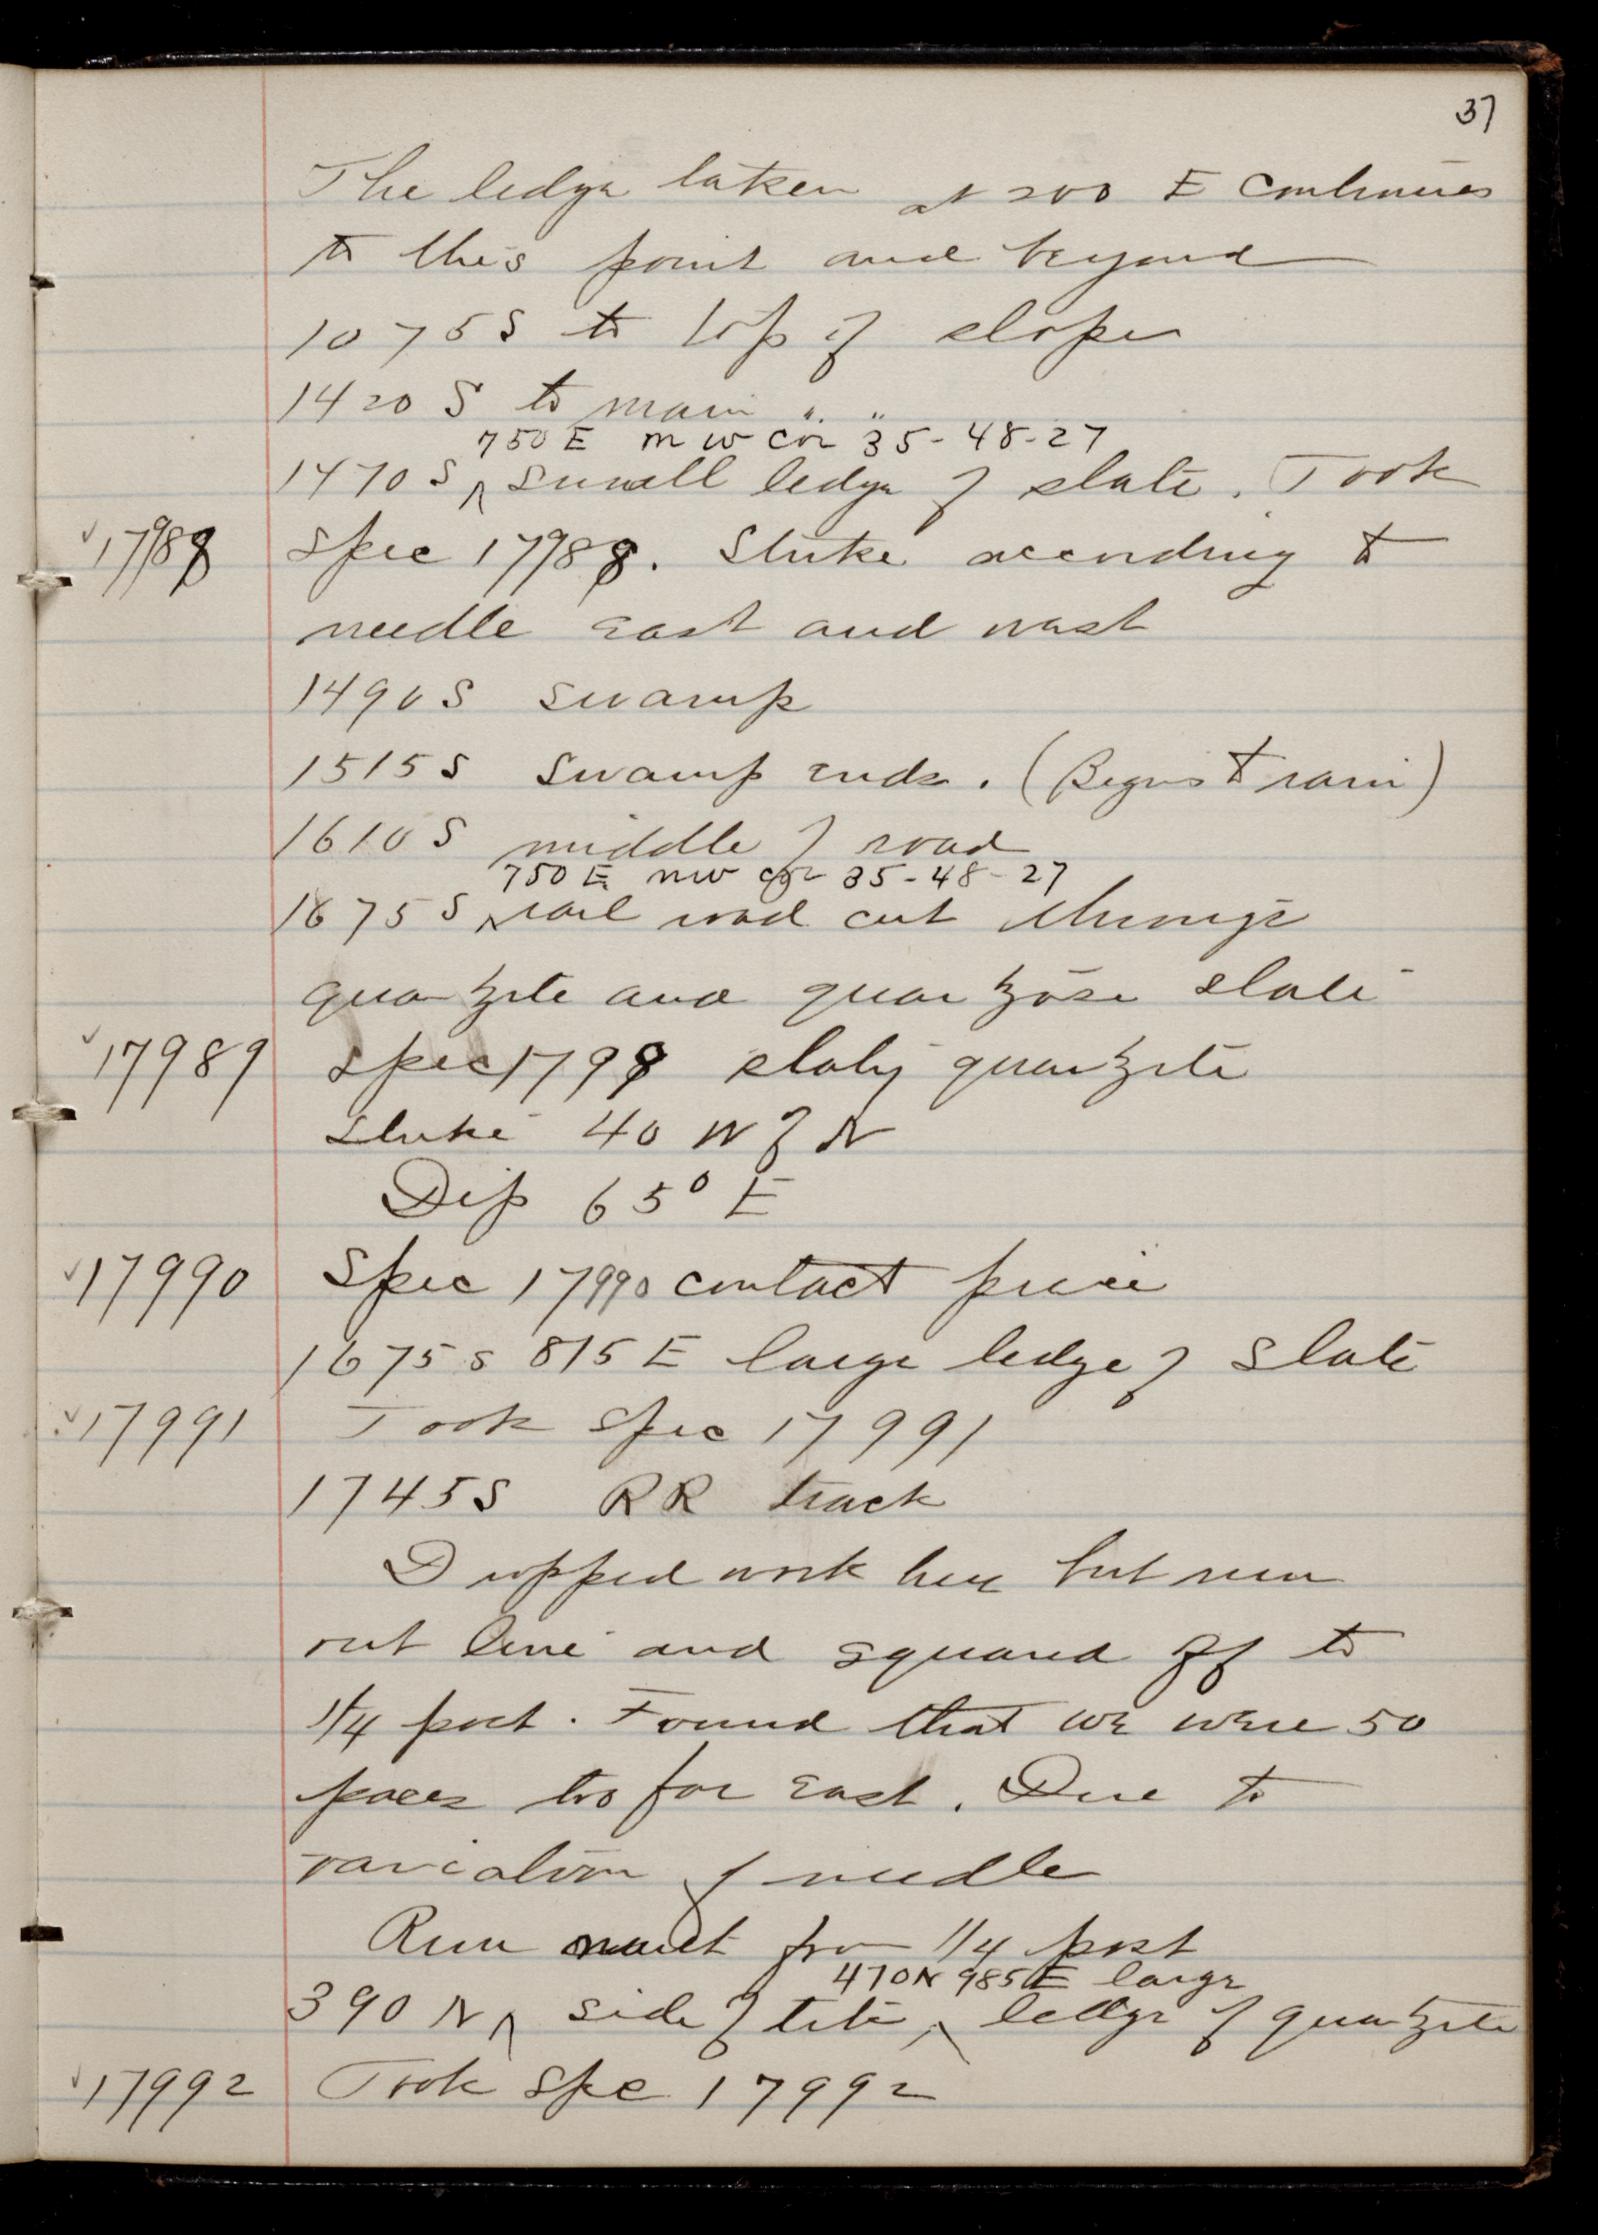 37
The ledge taken at 200 E continues
to this point and beyond
1075 S to top of slope
1420 S to main " "
750 E n w cor 35-48-27
1470 S ^ small ledge of slate. Took
17988 Spec 17988. Strike according to
needle east and west
1490 S swamp
1515 S Swamp ends. (Begins to rain)
1610 S middle of road
750 E nw cor 35-48-27
1675 S ^ rail road cut through
quartzite and quartzose slate
17989 Spec 1798 slaty quartzite
Strike 40 W of N
Dip 65° E
17990 Spec 17990 contact piece
1675 S 815 E large ledge of Slate
17991 Took Spec 17991
1745 S RR track
Dropped work here but run
out line and squared off to
1/4 post. Found that we were 50
paces too far east. Due to
variation of needle
Run from 1/4 post
470 N 985 E large
390 N ^ side of ^ ledge of quartzite
17992 Took Spec 17992